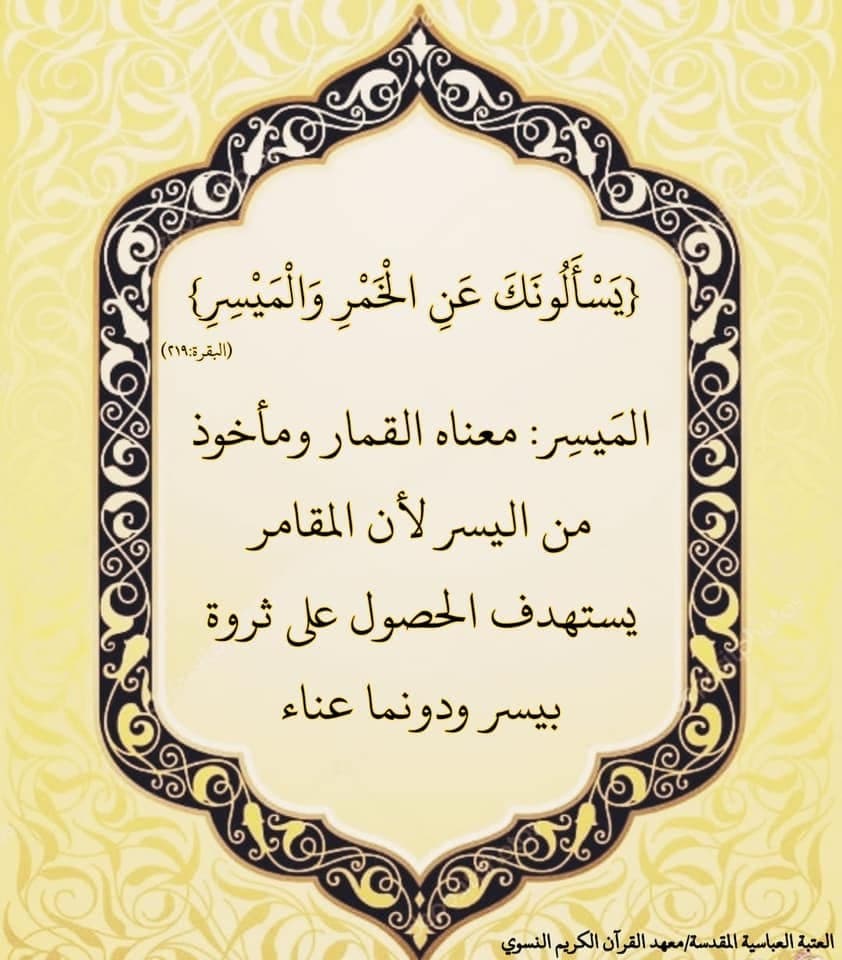 {يَسْأَلُونَكَ عَنِ الْخَمْرِ وَالْمَيْسِرِ}
(البقرة:٢١٩)
المَيسِر: معناه القمار ومأخوذ
من اليسر لأن المقامر
يستهدف الحصول على ثروة
بيسر ودونما عناء
العتبة العباسية المقدسة/معهد القرآن الكريم النسوي